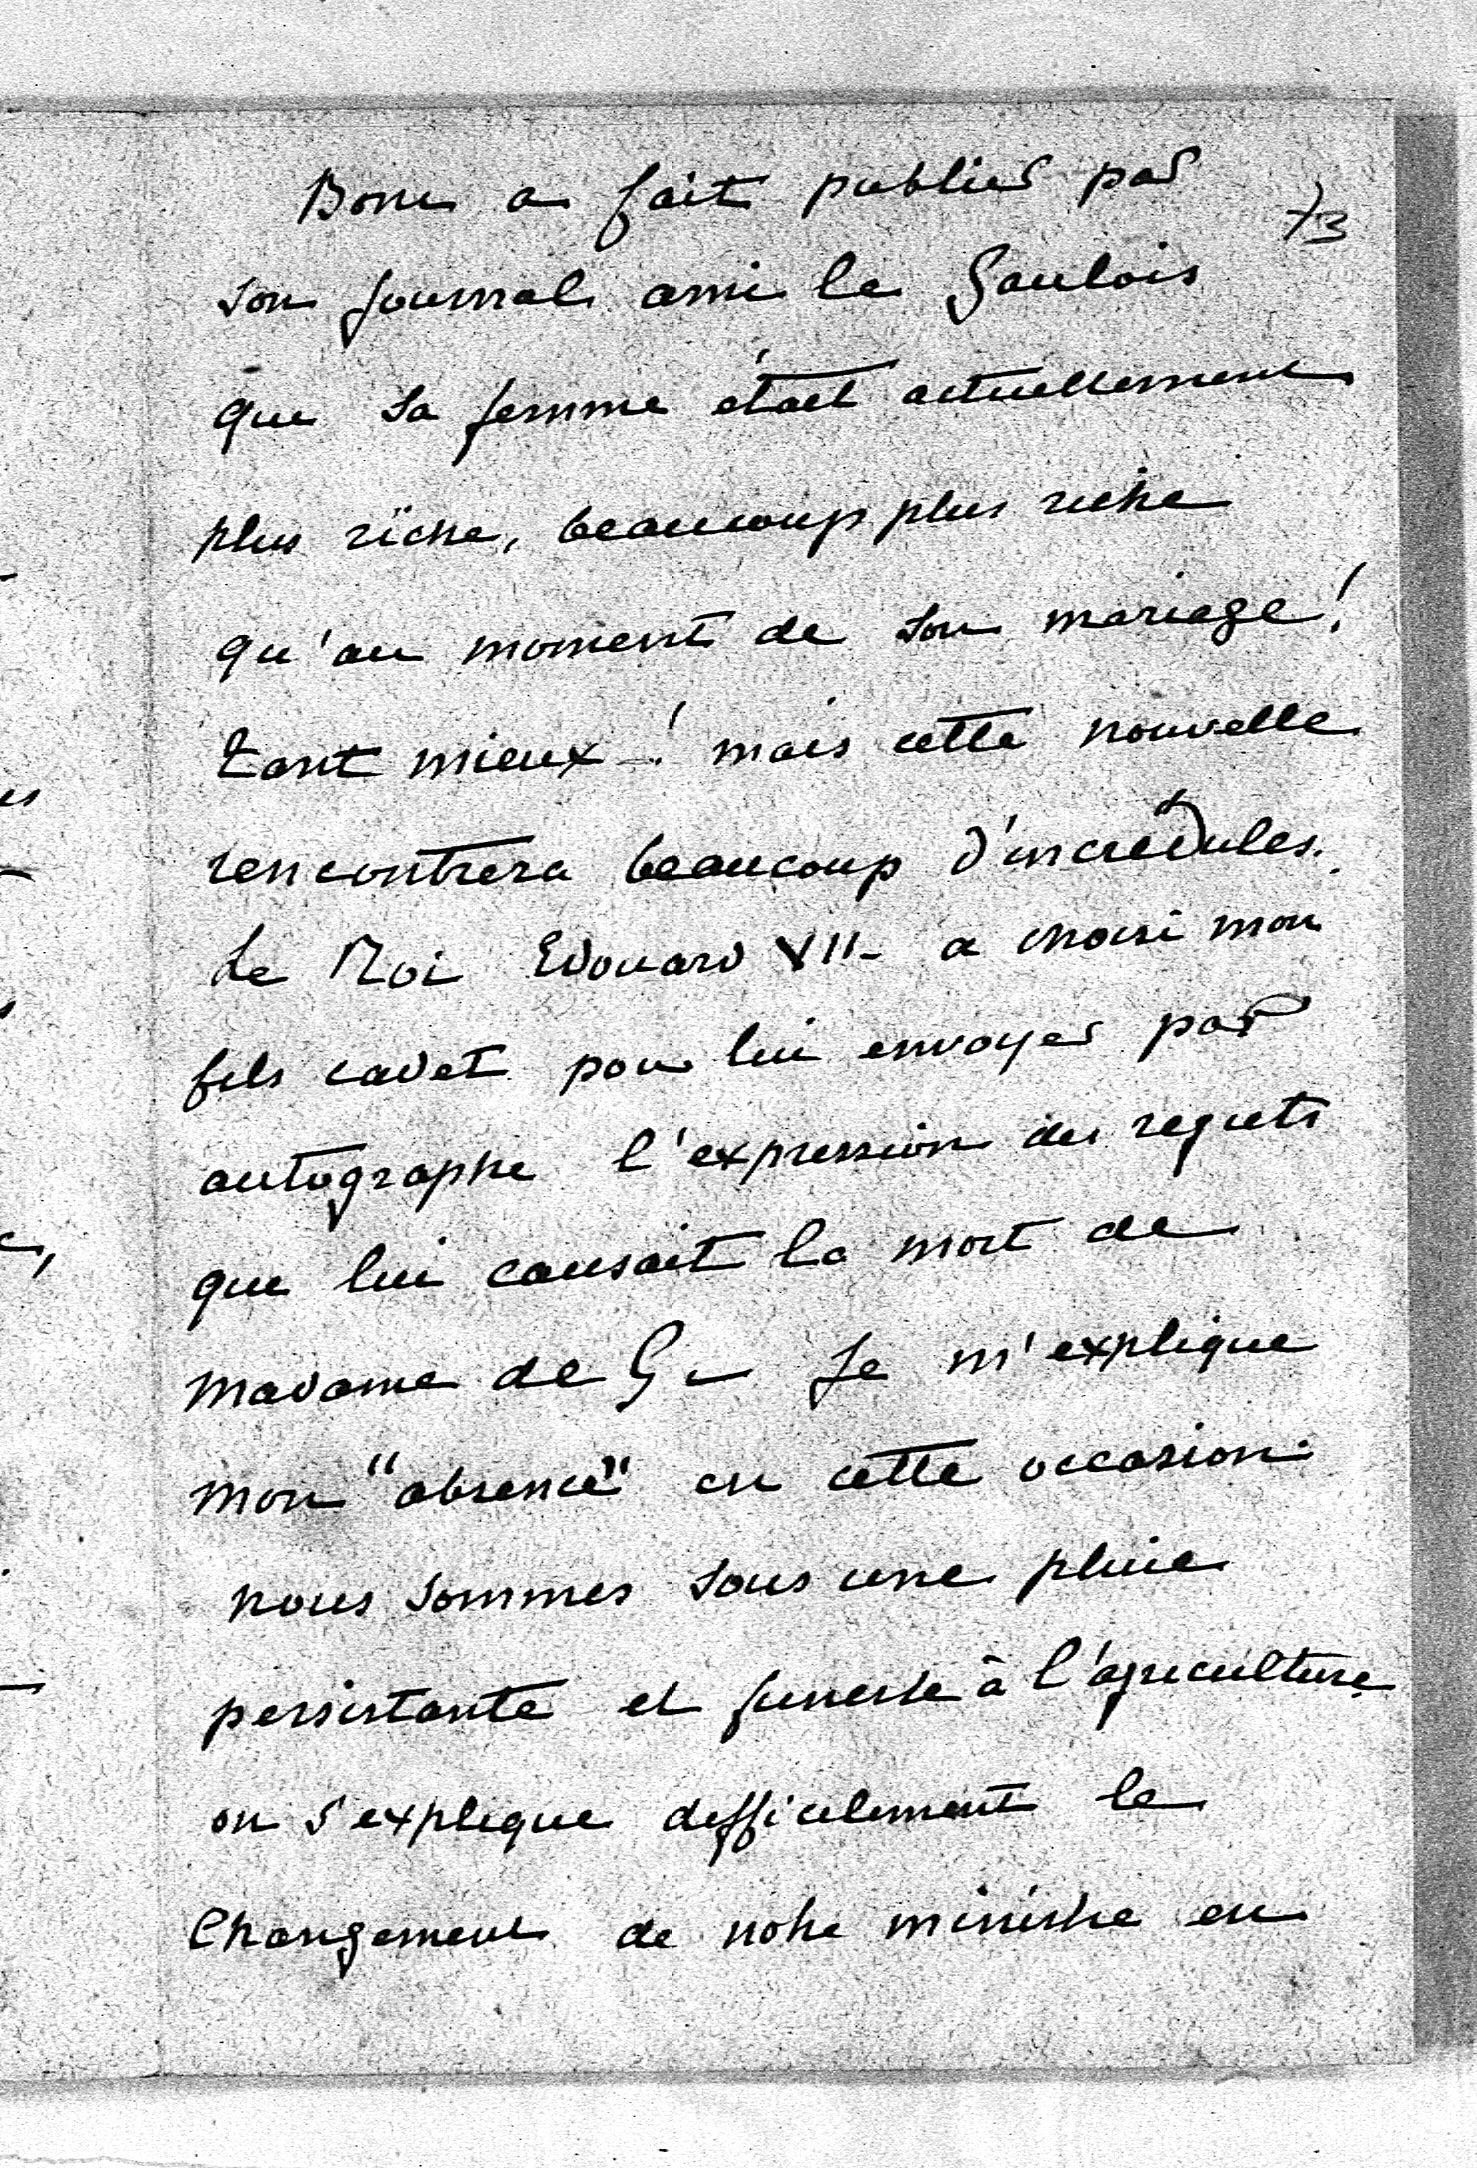 Boni a fait publier par
73
son journal ami le Gaulois
que sa femme était actuellement
plus riche, beaucoup plus riche
qu'au moment de son mariage!
tant mieux! mais cette nouvelle
rencontrera beaucoup d'incrédules.
Le Roi Edouard VII - a choisi mon
fils cadet pour lui envoyer par
autographe l'expression des regrets
que lui causait la mort de
Madame de G - Je m'explique
mon "absence" en cette occasion.
nous sommes sous une pluie
persistante et funeste à l'agriculture
on s'explique difficilement le
changement de notre ministre en